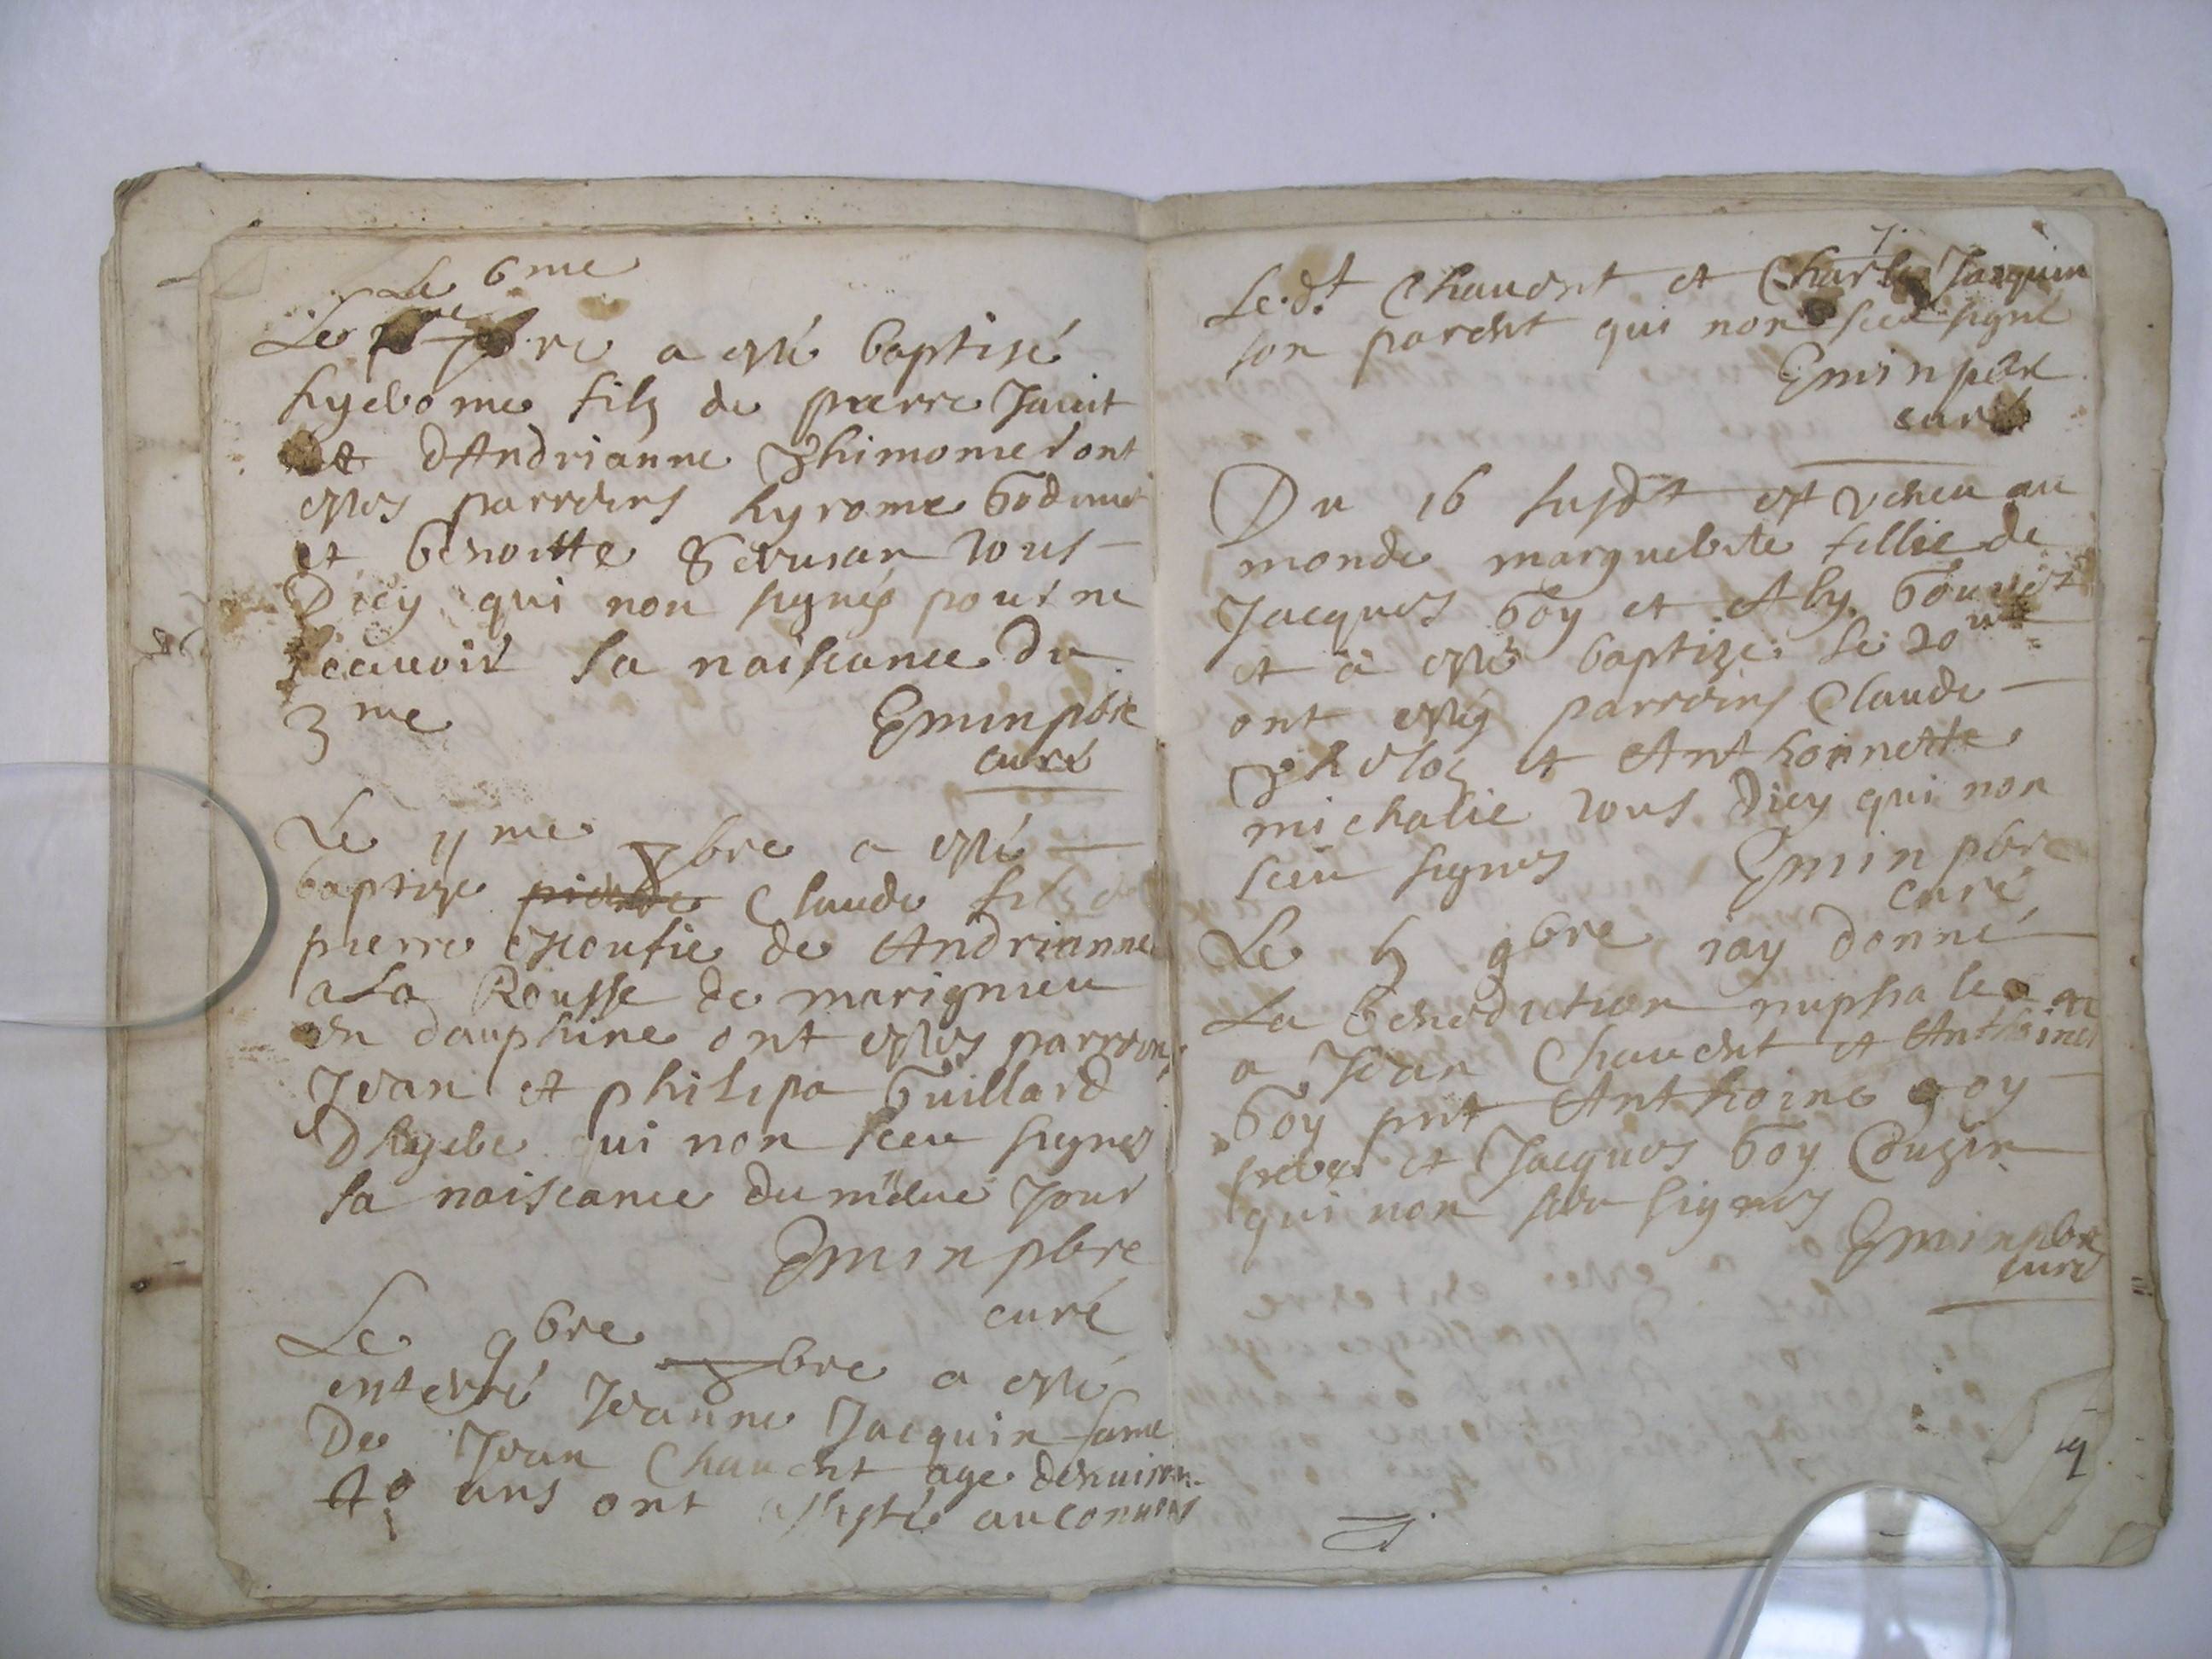 Le 6me
Le 7bre a esté baptisé
hyerome filz de pierre Jacut
et dAndrianne Thimomet ont
estes parreins hyrome
et benoitte Servusan tous
Dicy qui non signés pour ne
scauoir sa naiscance du
3me Emin pbre
curé
Le 11me 7bre a esté
baptize Claude fils de
pierre Moutie de Andrianne
a La Rousse de marignieu
en dauphine ont estes parreins
Jean et philipa Guillard
Dhyere qui non sceu signer
sa naiscance du mesme Jour
Emin pbre
curé
Le 9bre
bre a esté
enterré Jeanne Jacquin fame
De Jean Chauent age denuiron
40 ans ont assisté au conuois
7.
Le dt Chauent et Charles Jacquin
son parent qui non sceu signé
Emin pbre
curé
Du 16 susdt est veneu au
monde marguerite fillie de
Jacques Goy et Aby
et à esté baptize le 20me
ont estés parreins Claude
et Anthoinette
michalie tous Dicy qui non
sceu signes Emin pbre
curé
Le 5 9bre iay donné
La benediction nuptiale
a Jean Chauent et Anthoinet
Goy pnt Anthoine goy
frere et Jacques Goy Couzin
qui non sceu signes
Emin pbre
curé